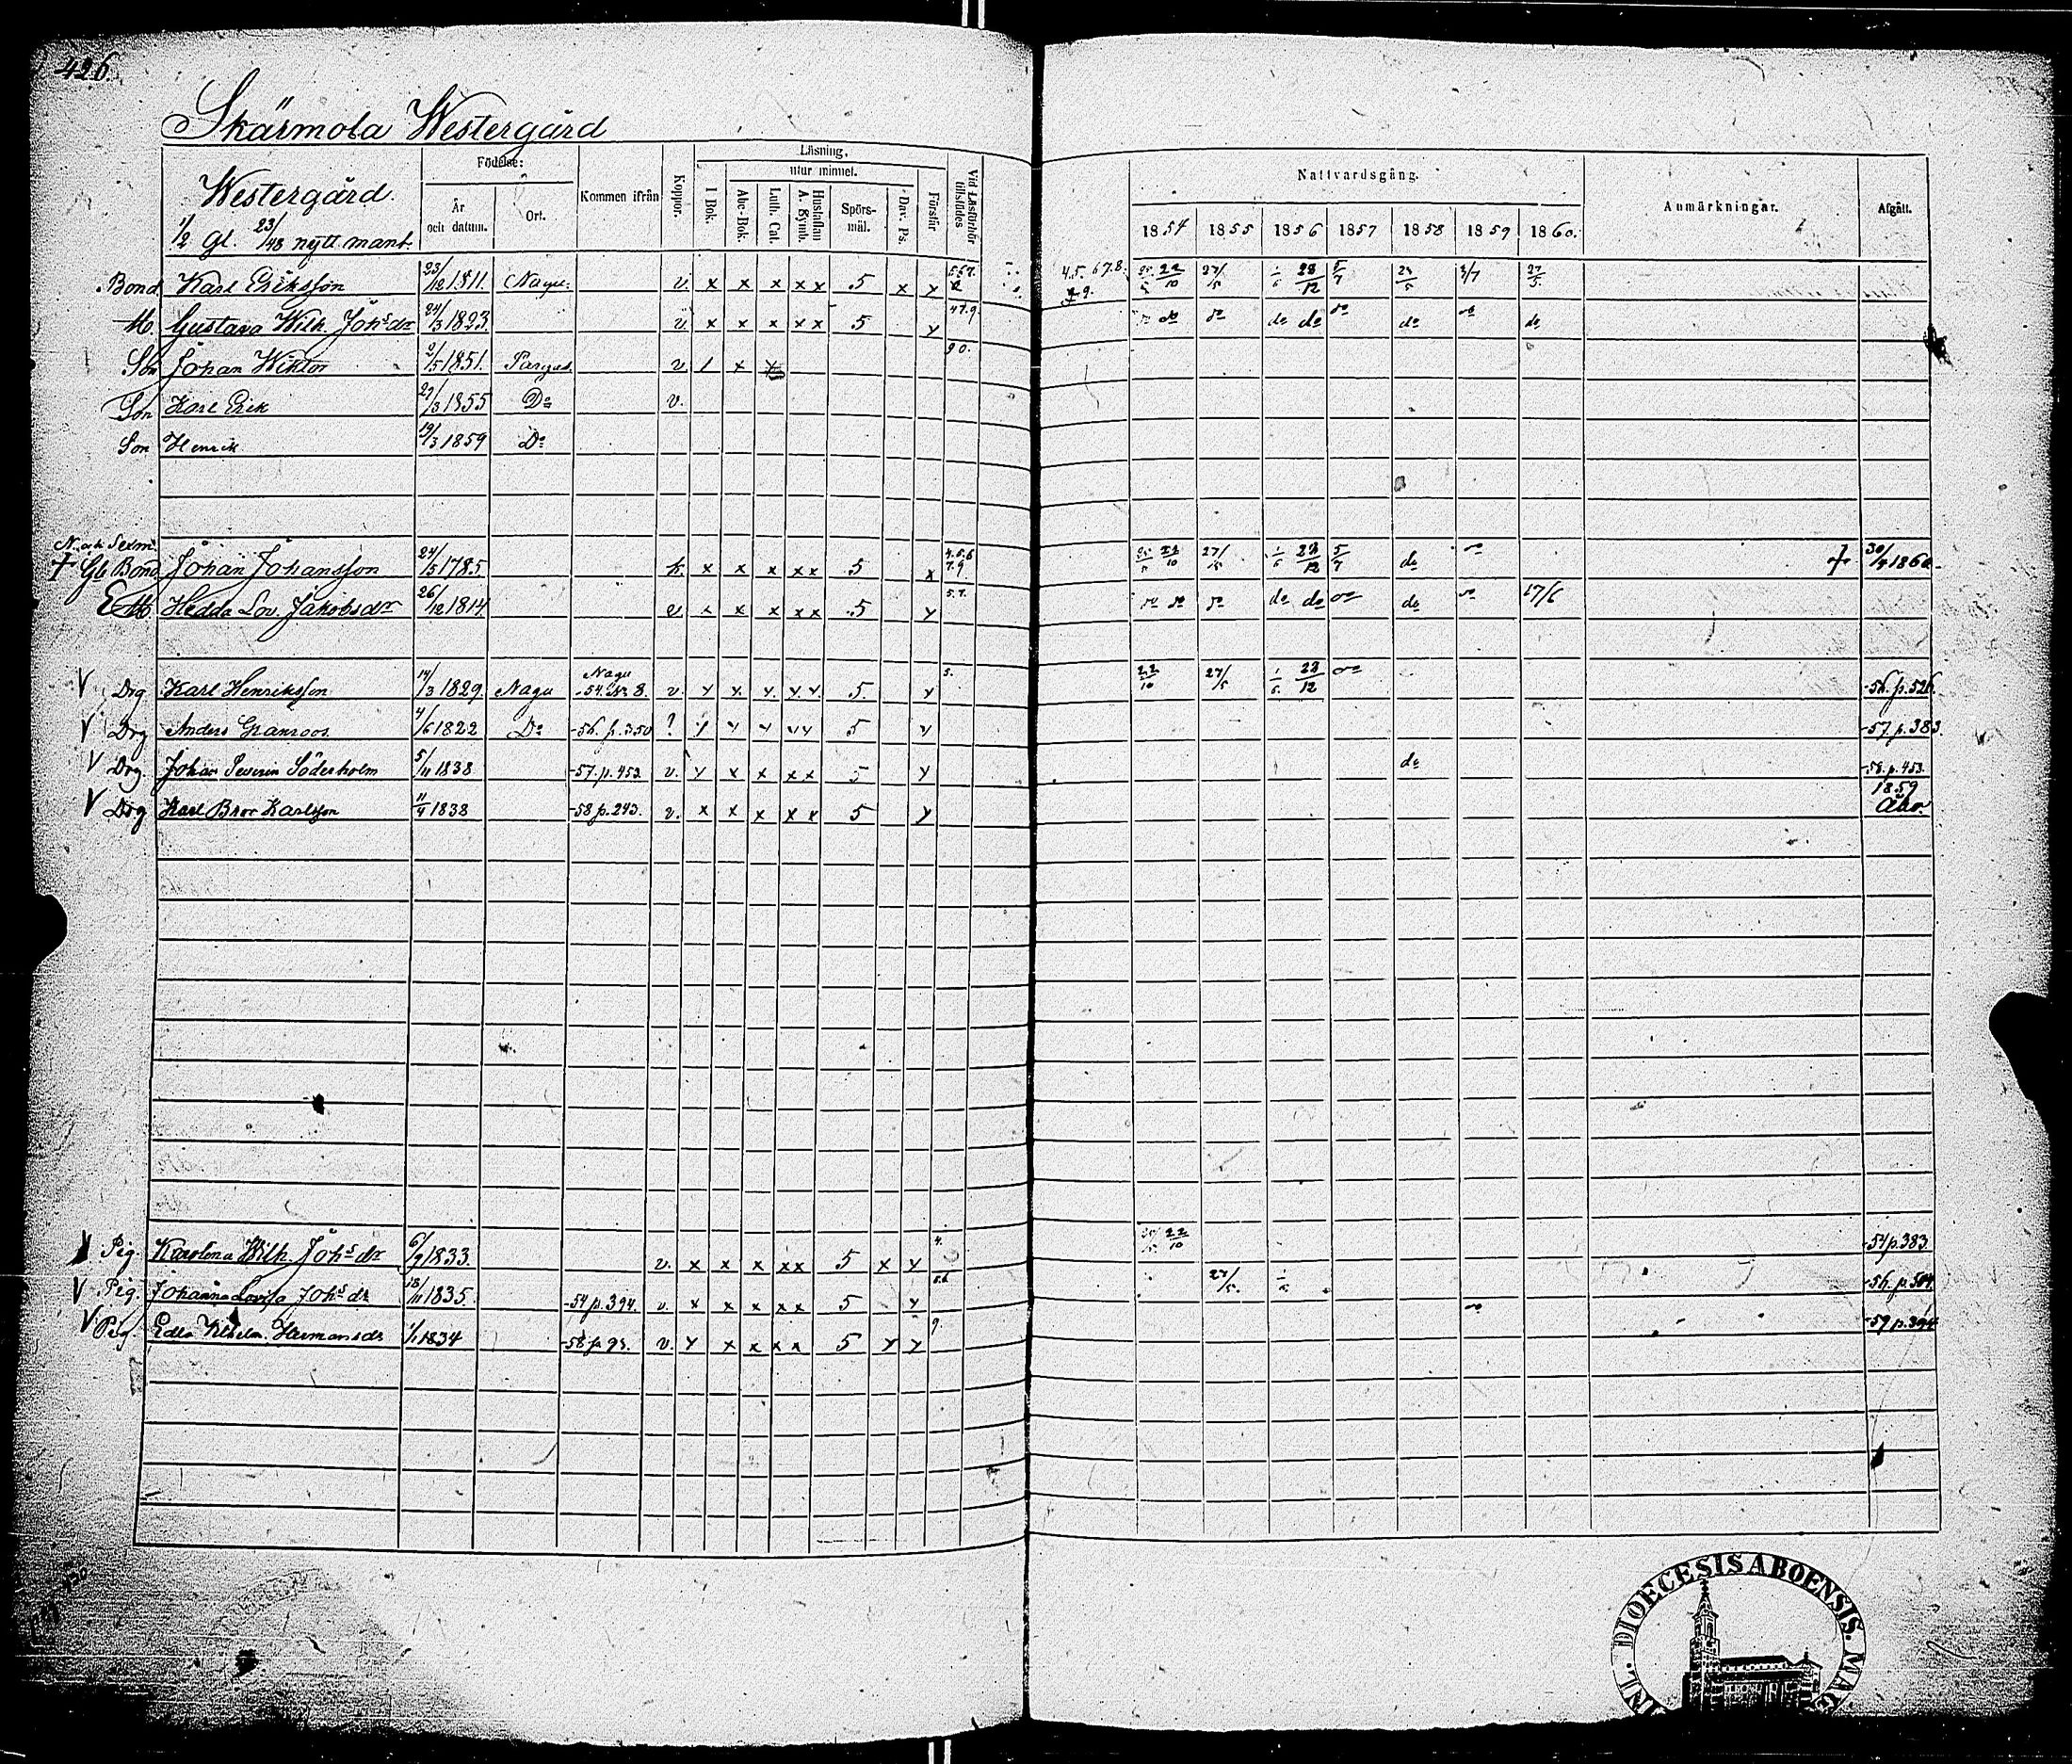 426.
Skärmola Westergård
Westergård.
1/2 gl. 23/48 nytt mant.
Födelse:
År och datum.
Ort.
Kommen ifrån
Koppor.
Läsning.
utur minnet.
I Bok.
Abc-Bok.
Luth. Cat.
Hustaflan A. Symb.
Spörs-mål.
Dav. Ps.
Förstår
Vid Läsförhör tillstädes
Nattvardsgång.
1854 1855 1856 1857 1858 1859 1860.
Anmärkningar.
Afgått.
Bond. Karl Eriksson 23/12 1811. Nagu. v. x x x x x 5 x y 5.6.7. 4.5.6.7.8. 9. 22/10 27/5 1/6 28/12 5/7 24/5 3/7 27/5
H. Gustava Wilh. Johsdr 24/3 1823. v. x x x x x 5 y 4.7.9. do do do do do do do do
Son Johan Wiktor 2/5 1851. Pargas v. 1 x x 9 0.
Son Karl Erik 27/3 1855 Do v.
Son Henrik 19/3 1859 Do
N. och Sexm.
† Gl. Bond. Johan Johansson 24/5 1785. k. x x x x x 5 x 4.5.6 7.9. 22/10 27/5 1/6 28/12 5/7 do do † 30/4 1860.
E. H. Hedda Lov. Jakobsdr 26/12 1814 v. x x x x x 5 y 5.7. do do do do do do do do 17/6
V Drg Karl Henriksson 14/3 1829 Nagu Nagu -54. No 8. v. y x y y y 5. y 5. 22/10 27/5 1/6 28/12 do -56. p. 526.
V Drg Anders Granroos. 4/6 1822 Do -56. p. 350 ? y y y y y 5 y -57. p. 383.
V Drg. Johan Severin Söderholm 5/11 1838 -57. p. 453. v. y x x x x 5 y do -58. p. 453.
V Drg Karl Bror Karlsson 11/4 1838 -58 p. 243. v. x x x x x 5 y 1859 Åbo.
V Pig. Karolina Wilh. Johsdr 6/9 1833. v. x x x x x 5 x y 4. 22/10 -54 p. 383.
V Pig. Johanna Lovisa Johsdr 18/11 1835. -54 p. 394. v. x x x x x 5 y 5.6. 27/5. 1/6 -56. p. 504.
V Pig. Edla Wilhelm. Hermansdr 1/1 1834 -58 p. 93. v. y x x x x 5 y y 9. do -59 p. 394
DIOECESIS ABOENSIS.